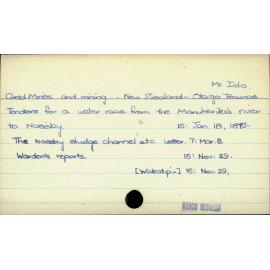 Mt Ida.
Gold Mines and mining - New Zealand - Otago Province
Tenders for a water race from the Manuherikia river
to Naseby. 15: Jan. 18, 1873.
The Naseby sludge channel etc. Letter. 7: Mar. 8.
Warden's reports. 15: Nov. 29.
[Wakatipu] 15: Nov. 29.
OTAGO WITNESS